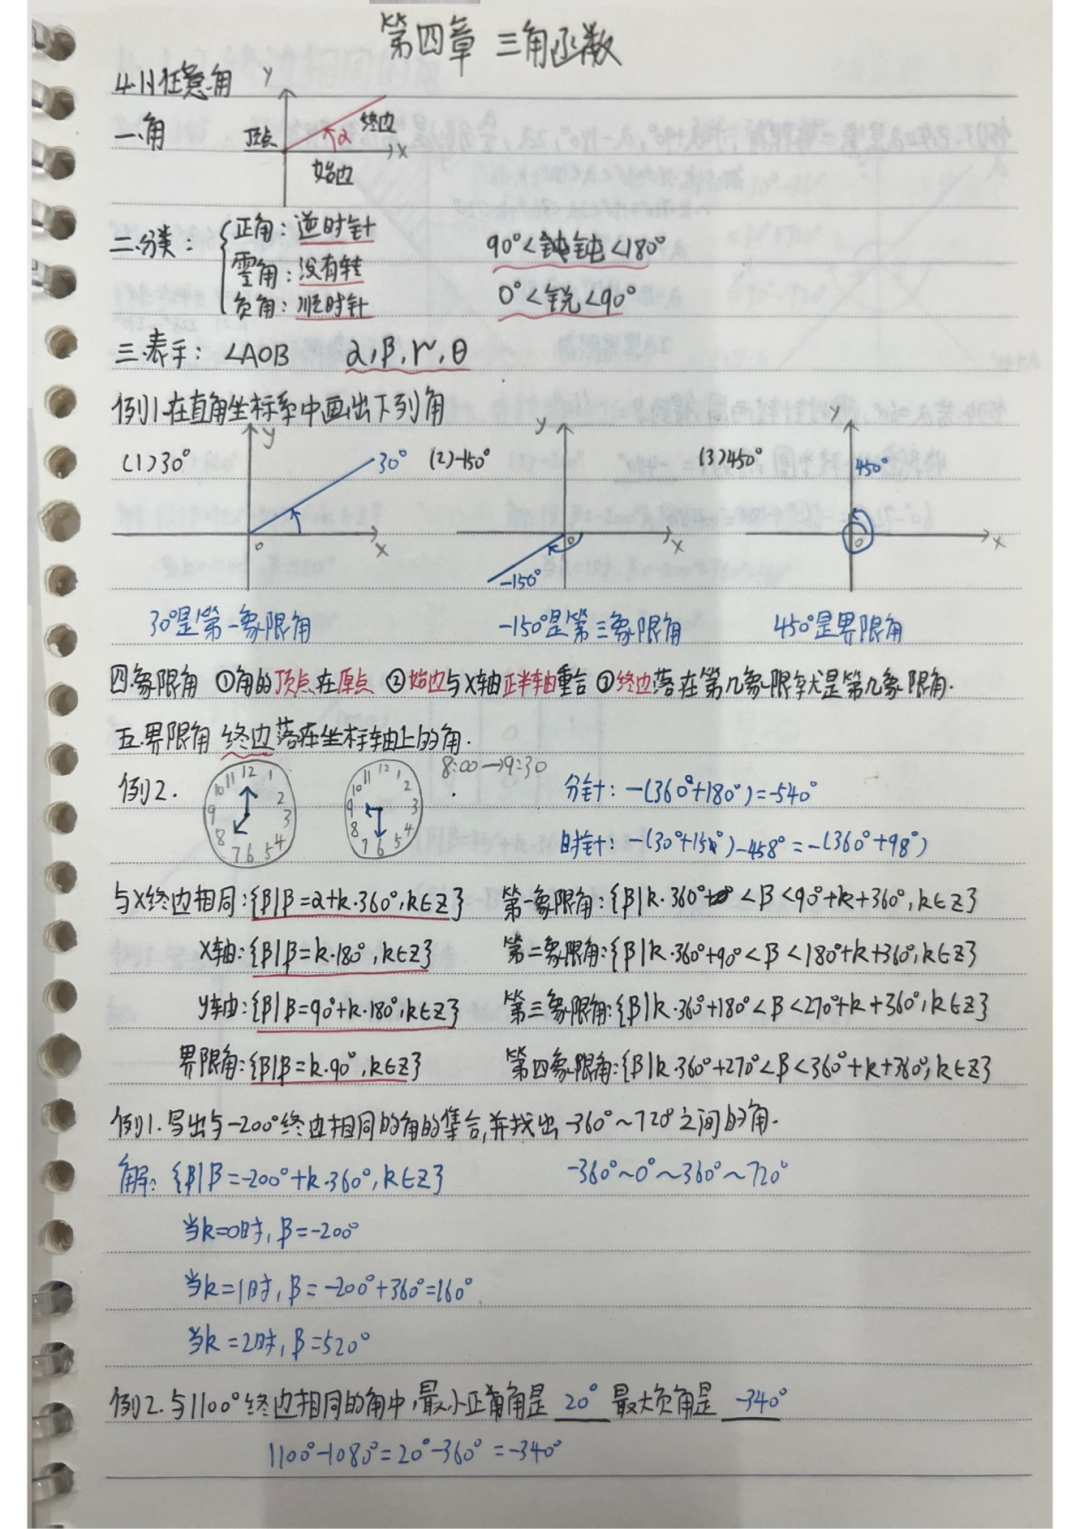 第四章 三角函数
4.1.1任意角
一.角
y
顶点
α
终边
x
始边
二.分类：
正角：逆时针
90°<钝钝<180°
零角：没有转
负角：顺时针
0°<锐<90°
三.表示：∠AOB α,β,γ,θ
例1.在直角坐标系中画出下列角
(1)30° y 30° o x
(2)-150° y o x -150°
(3)450° y 450° o x
30°是第一象限角 -150°是第三象限角 450°是界限角
四.象限角 ①角的顶点在原点 ②始边与X轴正半轴重合 ③终边落在第几象限就是第几象限角.
五.界限角 终边落在坐标轴上的角.
例2.
12 1 2 3 4 5 6 7 8 9 10 11
12 1 2 3 4 5 6 7 8 9 10 11
8:00→9:30
分针：-(360°+180°)=-540°
时针：-(30°+15°)-458°=-(360°+98°)
与X终边相同:{β|β=α+k·360°,k∈Z} 第一象限角:{β|k·360°+0°<β<90°+k+360°,k∈Z}
X轴:{β|β=k·180°,k∈Z} 第二象限角:{β|k·360°+90°<β<180°+k+360°,k∈Z}
y轴:{β|β=90°+k·180°,k∈Z} 第三象限角:{β|k·360°+180°<β<270°+k+360°,k∈Z}
界限角:{β|β=k·90°,k∈Z} 第四象限角:{β|k·360°+270°<β<360°+k+360°,k∈Z}
例1.写出与-200°终边相同的角的集合,并找出-360°~720°之间的角.
解：{β|β=-200°+k·360°,k∈Z} -360°~0°~360°~720°
当k=0时,β=-200°
当k=1时,β=-200°+360°=160°
当k=2时,β=520°
例2.与1100°终边相同的角中,最小正角是 20° 最大负角是 -340°
1100°-1080°=20°-360°=-340°